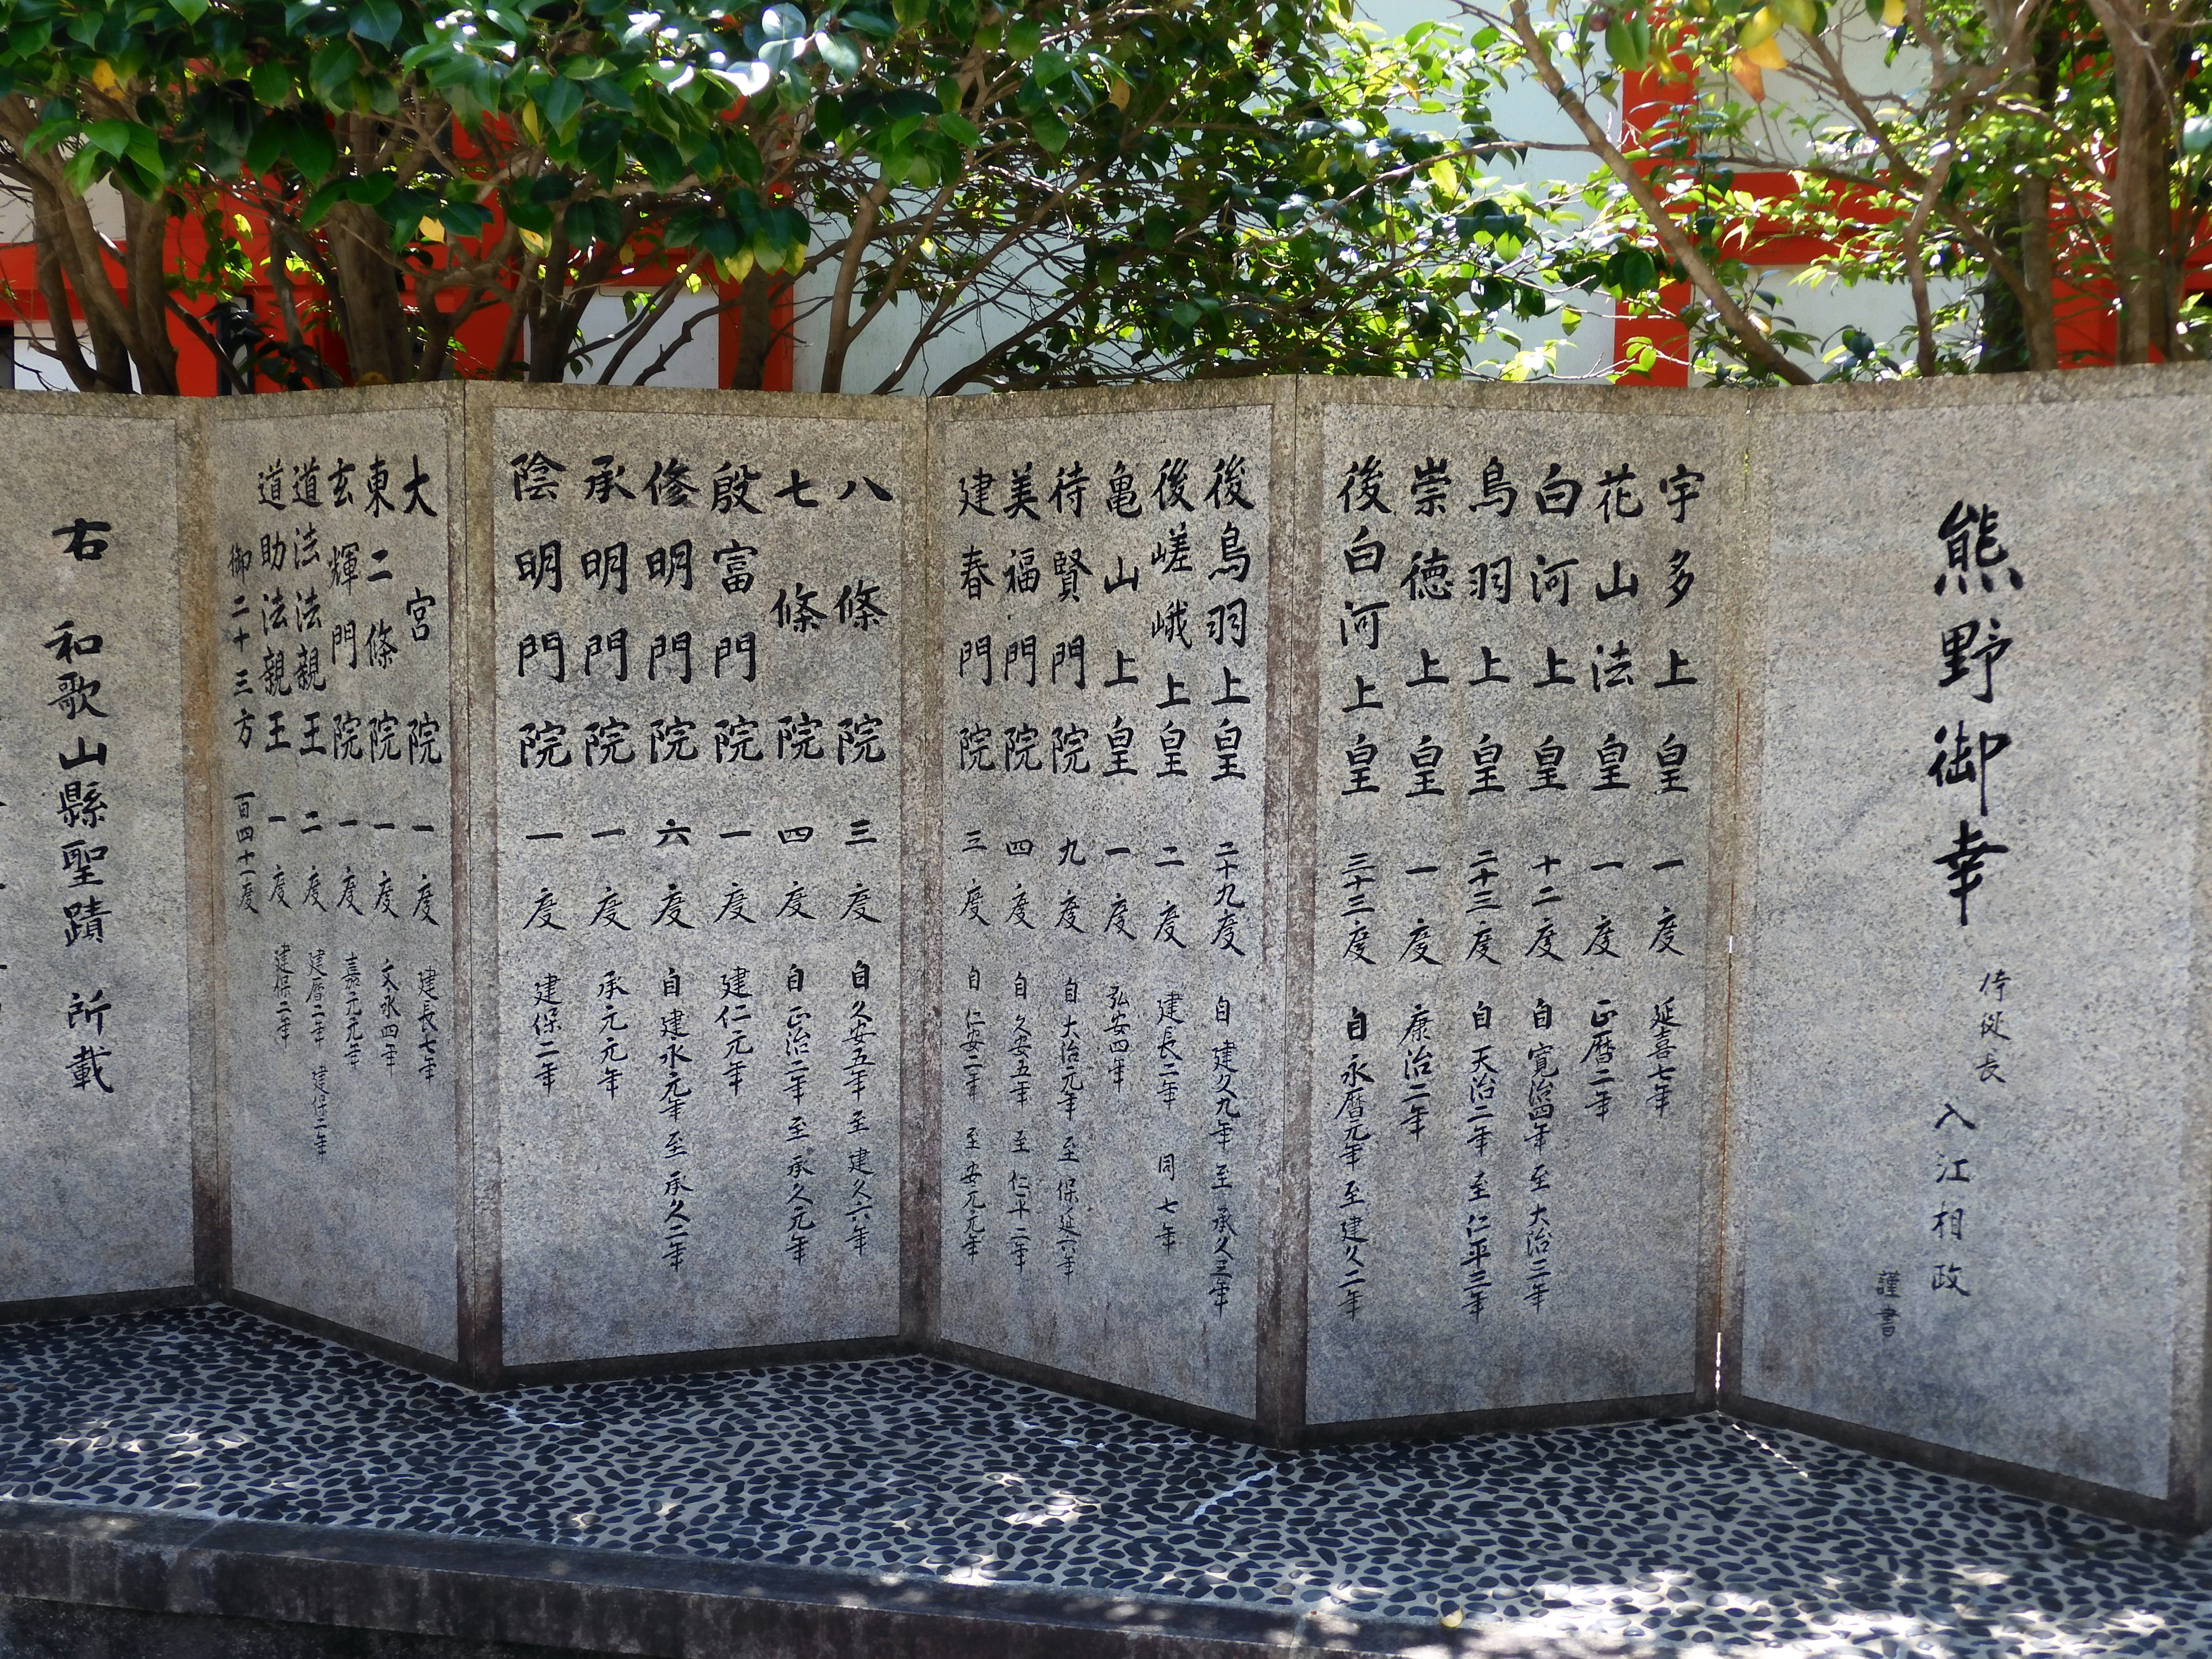 熊野御幸
侍従長
入江相政
謹書
宇多上皇 一度 延喜七年
花山法皇 一度 正暦二年
白河上皇 十二度 自寛治四年 至大治三年
鳥羽上皇 二十三度 自天治二年 至仁平三年
崇徳上皇 一度 康治二年
後白河上皇 三十三度 自永暦元年 至建久二年
後鳥羽上皇 二十九度 自建久九年 至承久三年
後嵯峨上皇 二度 建長二年 同七年
亀山上皇 一度 弘安四年
待賢門院 九度 自大治元年 至保延六年
美福門院 四度 自久安五年 至仁平二年
建春門院 三度 自仁安二年 至安元元年
八條院 三度 自久安五年 至建久六年
七條院 四度 自正治二年 至承久元年
殷富門院 一度 建仁元年
修明門院 六度 自建永元年 至承久二年
承明門院 一度 承元元年
陰明門院 一度 建保二年
大宮院 一度 建長七年
東二條院 一度 文永四年
玄輝門院 一度 嘉元元年
道法法親王 二度 建暦二年 建保二年
道助法親王 一度 建保二年
御二十三方 百四十一度
右 和歌山縣聖蹟 所載